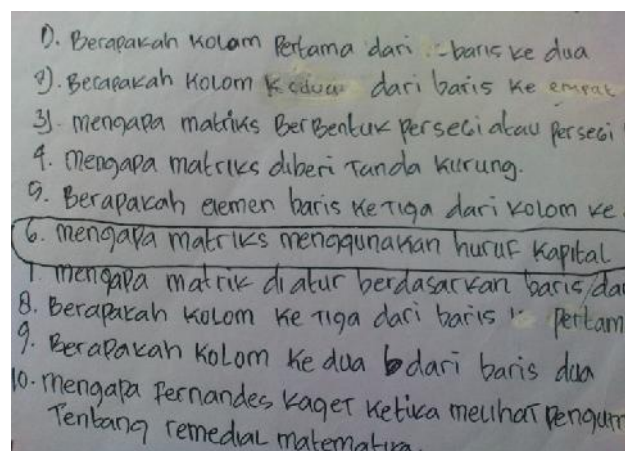 1). Berapakah kolom Pertama dari baris ke dua
2). Berapakah Kolom Kedua dari baris ke empat
3). mengapa matriks BerBentuk Persegi atau Persegi
4. Mengapa matriks diberi Tanda kurung.
5. Berapakah elemen baris keTiga dari kolom ke
6. mengapa matriks menggunakan huruf Kapital
7. mengapa matrik diatur berdasarkan baris/da
8. Berapakah Kolom Ke Tiga dari baris Pertam
9. Berapakah Kolom Ke dua dari baris dua
10. mengapa Fernandes kaget ketika melihat Pengum
Tentang remedial matematika.